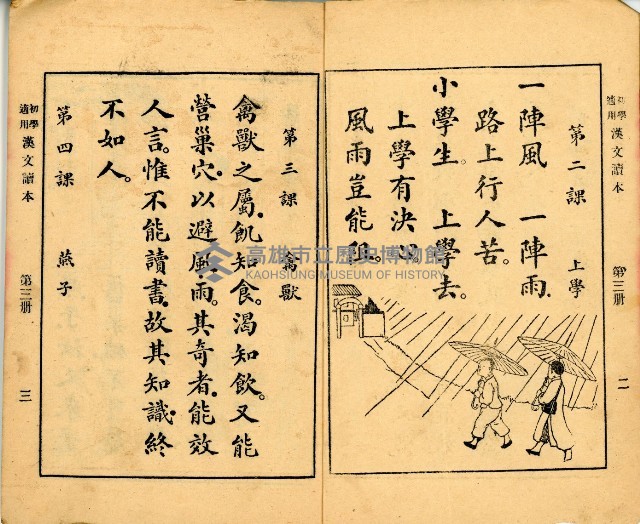 初學適用 漢文讀本 第三册 二
第二課 上學
一陣風 一陣雨
路上行人苦。
小學生 上學去。
上學有決心
風雨豈能阻。
第三課 禽獸
禽獸之屬。飢知食。渴知飲。又能
營巢穴。以避風雨。其奇者。能效
人言。惟不能讀書。故其知識。終
不如人。
第四課 燕子
初學適用 漢文讀本 第三册 三
高雄市立歷史博物館
KAOHSIUNG MUSEUM OF HISTORY